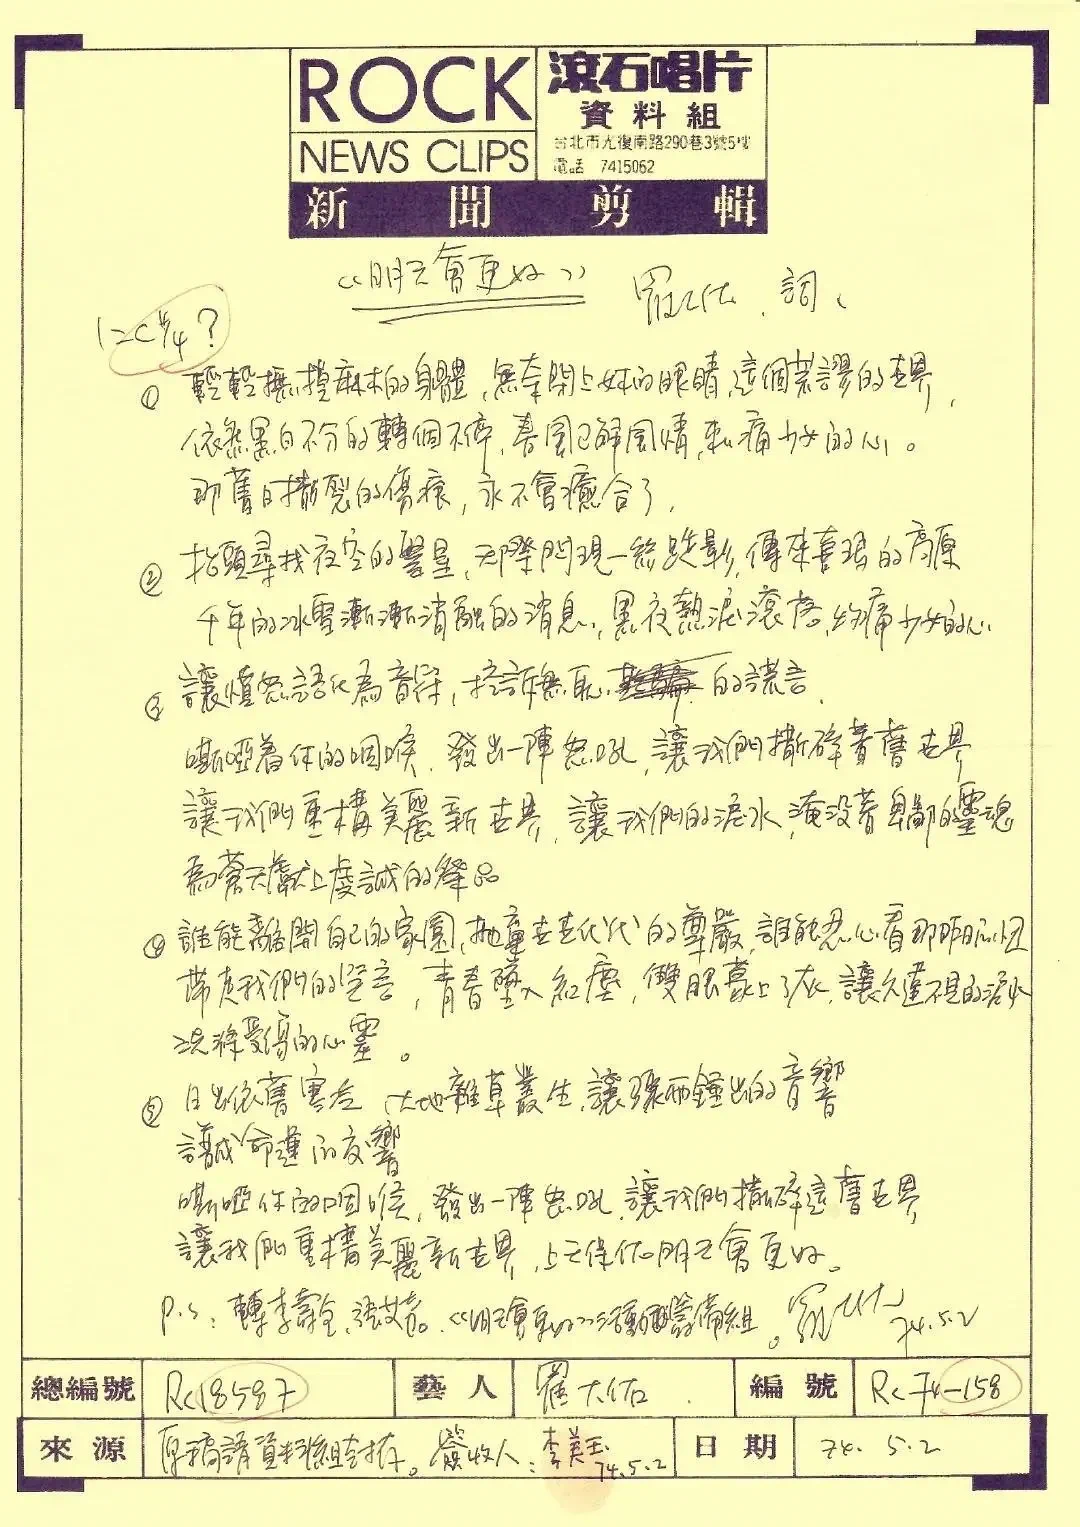 ROCK
NEWS CLIPS
滾石唱片
資料組
台北市光復南路290巷3號5樓
電話 7415062
新聞剪輯
《明天會更好》 羅大佑 詞、
12C 4/4?
① 輕輕撫摸麻木的身體,無奈閉上妳的眼睛,這個荒謬的世界,
依然黑白不分的轉個不停,春風已解風情,刺痛少女的心。
那舊日撕裂的傷痕,永不會癒合了,
② 抬頭尋找夜空的雙星,天際閃現一絲蹤影,傳來喜訊的高原
千年的冰雪漸漸消融的消息,黑夜熱淚滾落,灼痛少女的心
③ 讓憤怒語化為音符,控訴無恥 的謊言,
嘶啞着你的咽喉,發出一陣怒吼,讓我們撕碎舊世界
讓我們重構美麗新世界,讓我們的淚水,淹沒着卑鄙的靈魂
為蒼天獻上虔誠的祭品
④ 誰能離開自己的家園,拋棄世世代代的尊嚴,誰能忍心看那昨日的
帶走我們的 ,青春墮入紅塵,雙眼蒙上了灰,讓久違不見的淚水
洗滌受傷的心靈。
⑤ 日出依舊寒冷,大地雜草叢生,讓 鐘出的音響
譜成命運的交響
嘶啞你的咽喉,發出一陣怒吼,讓我們撕碎這舊世界
讓我們重構美麗新世界,上天保佑明天會更好。
P.S: 轉李壽全,張艾嘉。《明天會更好》活動籌備組。羅大佑 74.5.2
總編號 Rc18587 藝人 羅大佑. 編號 Rc74-158
來源 原稿請資料組封存。簽收人:李美玉 74.5.2 日期 74. 5. 2